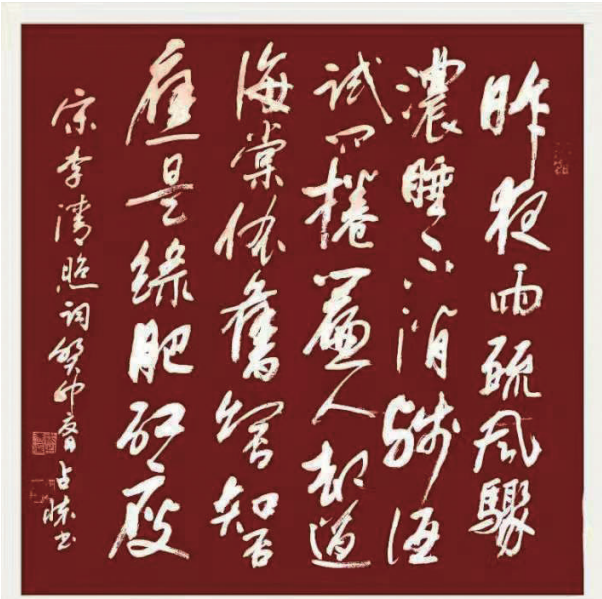 昨夜雨疏风驟
濃睡不消殘酒
試问捲簾人却道
海棠依舊知否知否
應是綠肥紅瘦
宋李清照词癸卯春占书